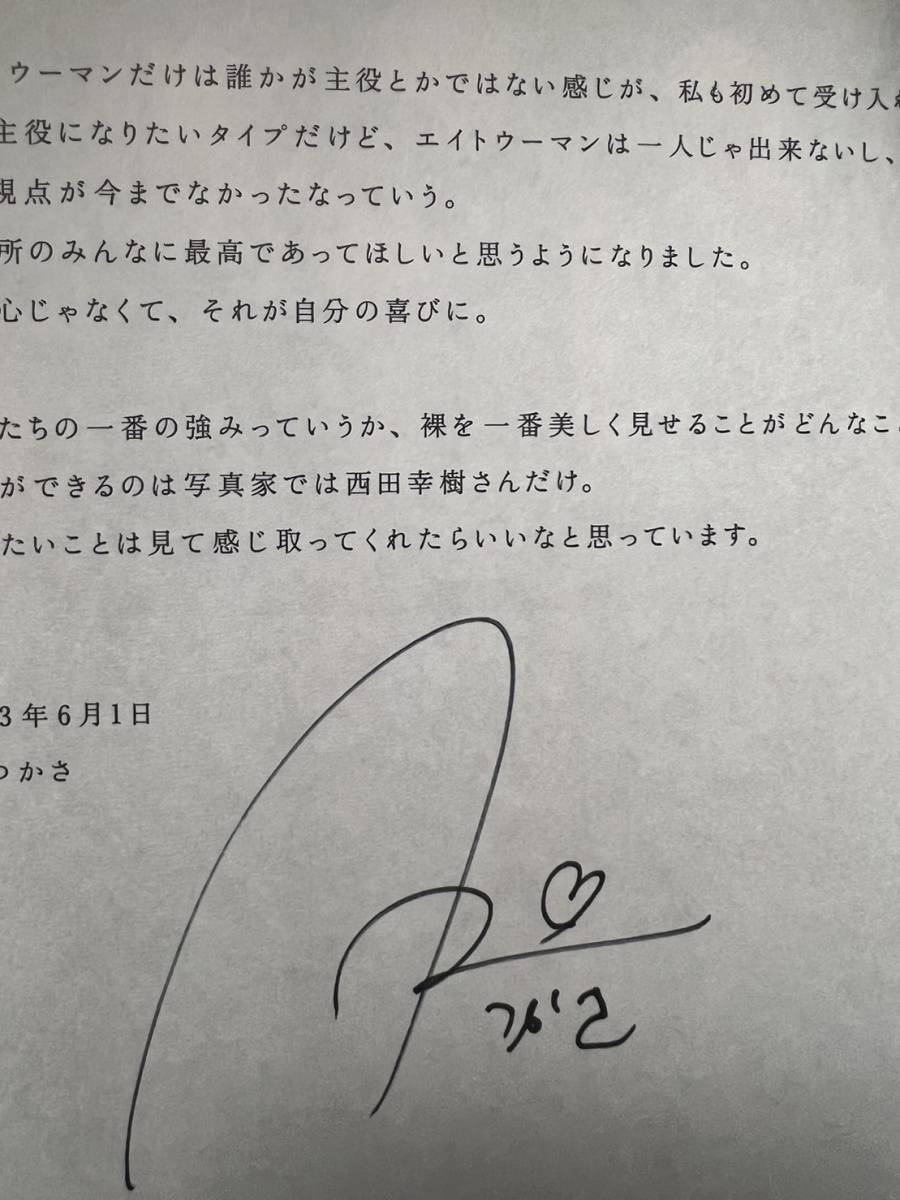 ウーマンだけは誰かが主役とかではない感じが、私も初めて受け入れ
主役になりたいタイプだけど、エイトウーマンは一人じゃ出来ないし、
視点が今までなかったなっていう。
所のみんなに最高であってほしいと思うようになりました。
心じゃなくて、それが自分の喜びに。
たちの一番の強みっていうか、裸を一番美しく見せることがどんなこ
ができるのは写真家では西田幸樹さんだけ。
たいことは見て感じ取ってくれたらいいなと思っています。
3年6月1日
つかさ
つかさ